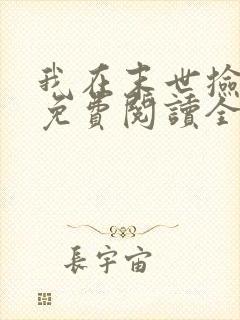 我在末世撿
免費閱讀全
長宇宙